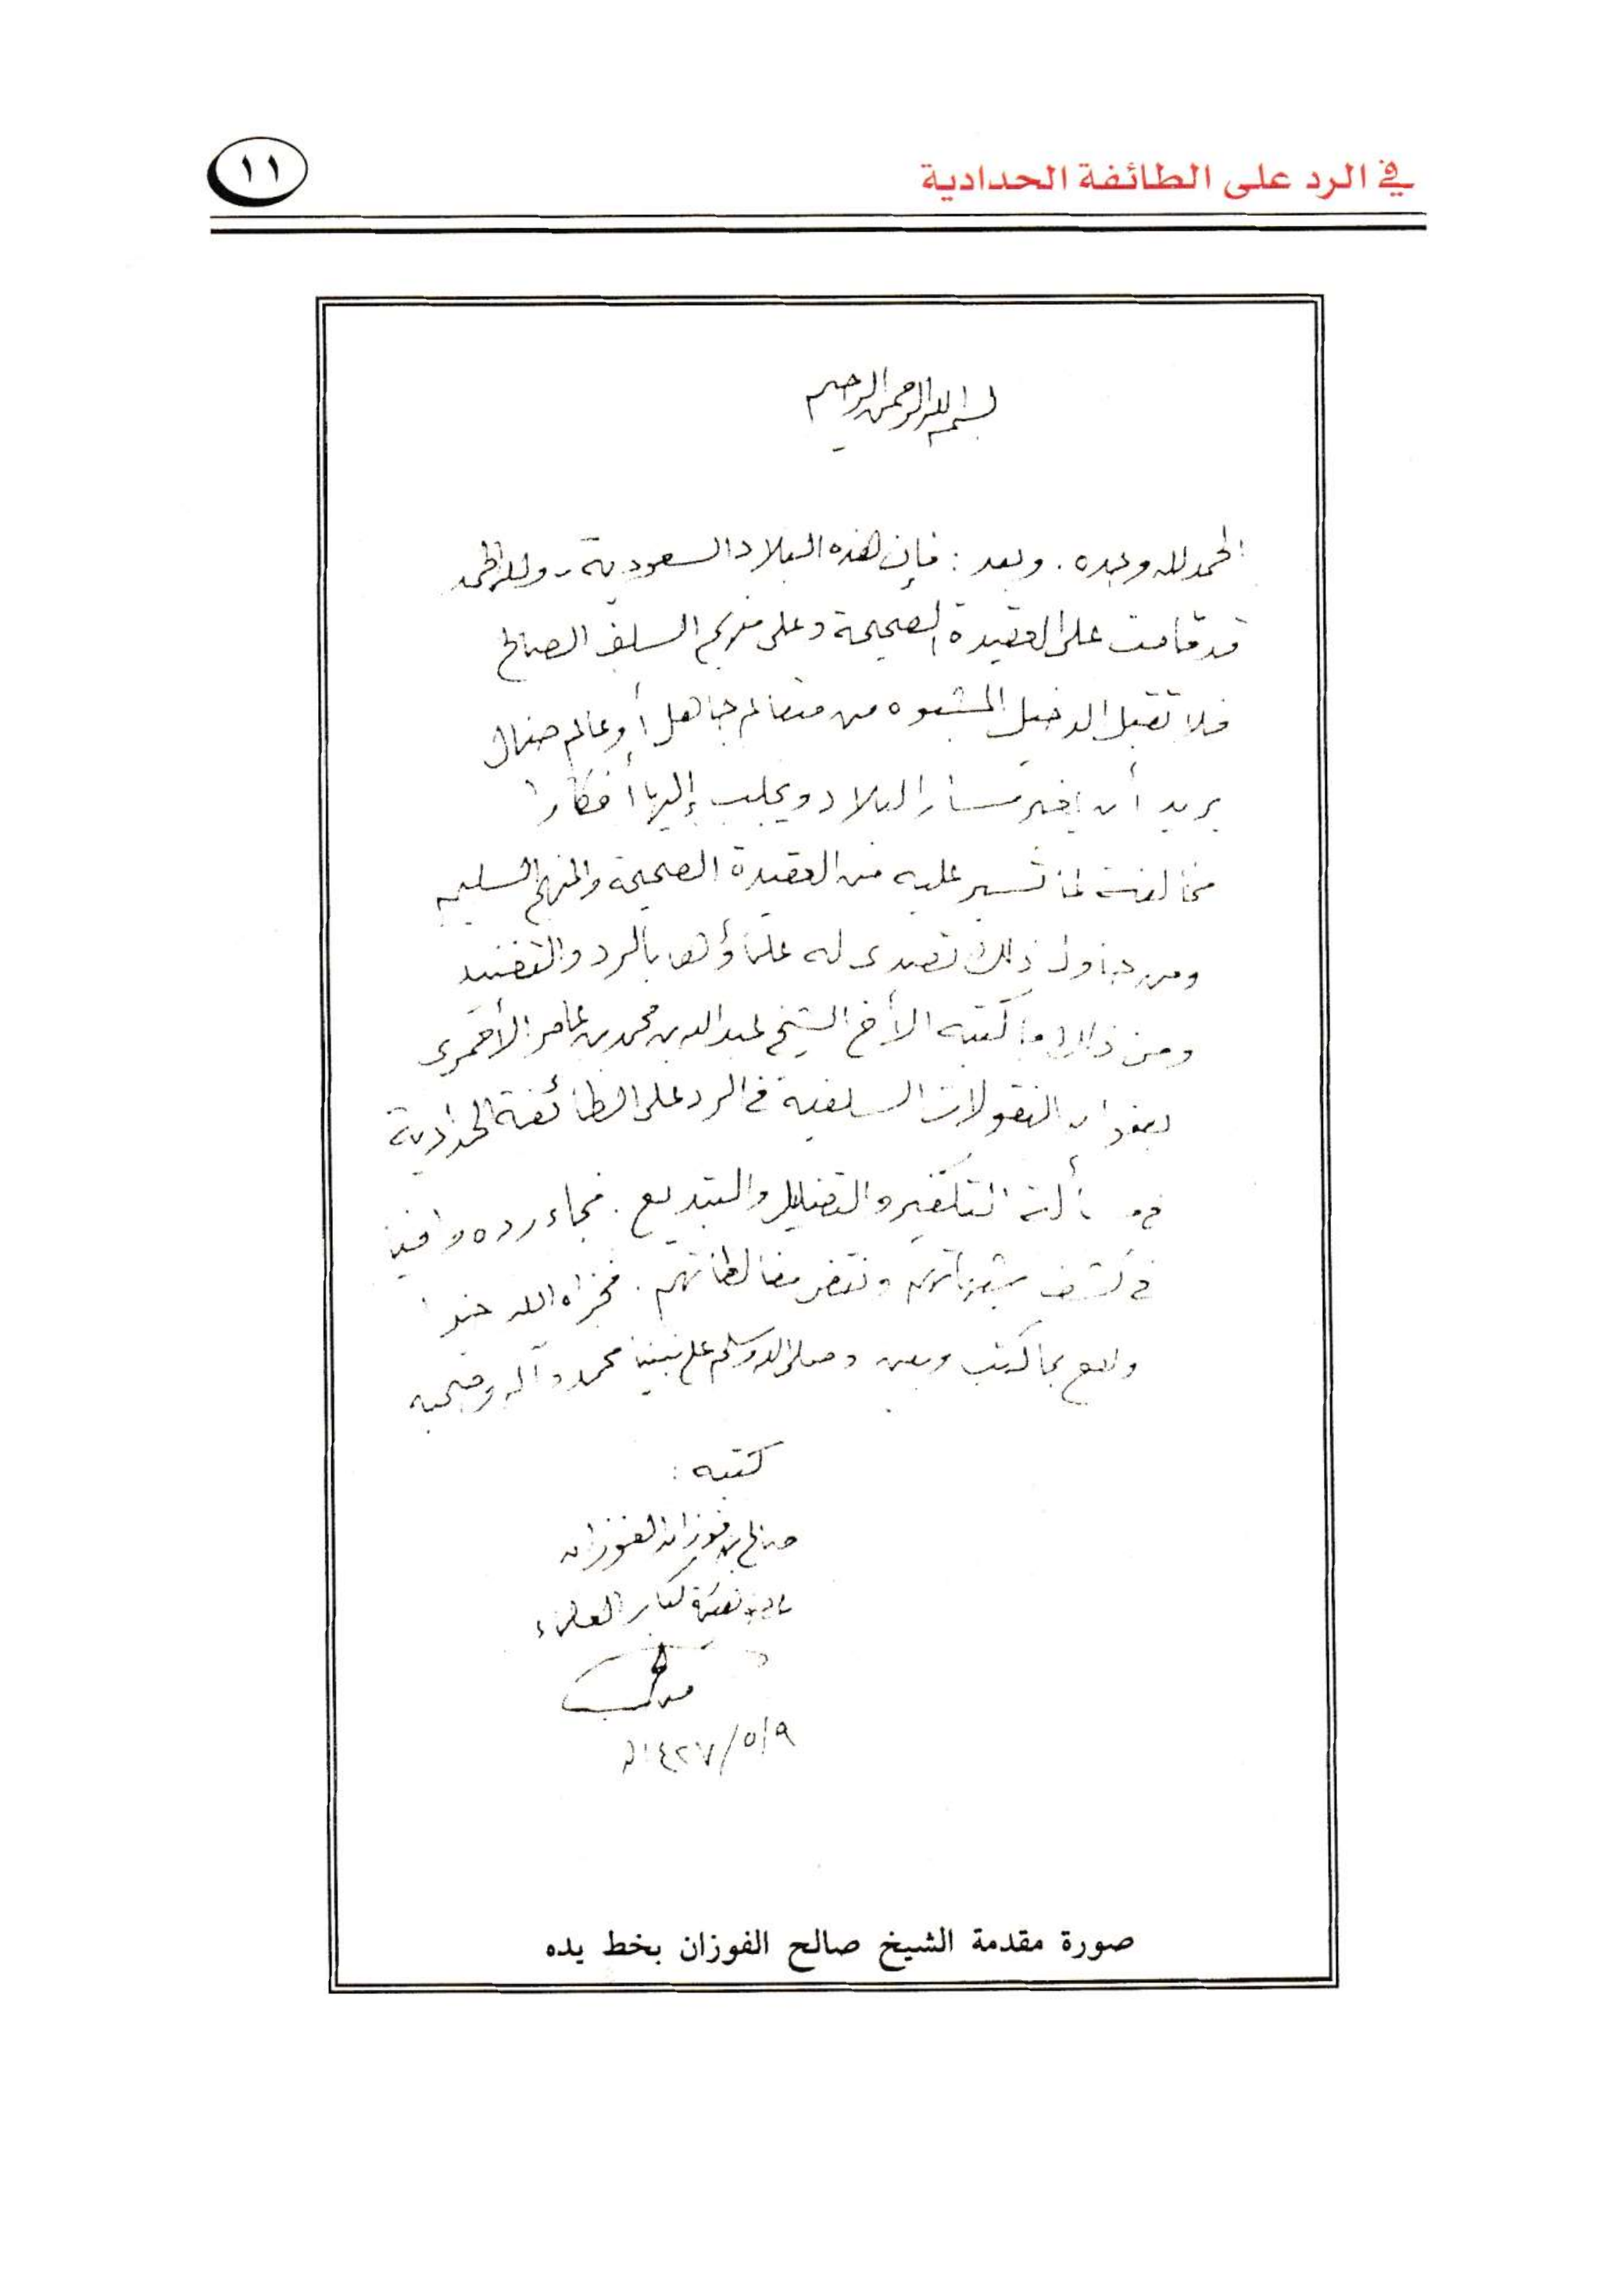 في الرد على الطائفة الحدادية
١١
بسم الله الرحمن الرحيم
الحمد لله وحده . وبعد : فإن هذه البلاد السعودية - ولله الحمد
قد قامت على العقيدة الصحيحة وعلى منهج السلف الصالح
فلا تقبل الدخيل المشبوه من متعالم جاهل أو عالم ضال
يريد أن يغير مسار البلاد ويجلب إليها أفكارا
مخالفة لما تسير عليه من العقيدة الصحيحة والمنهج السليم
ومن حاول ذلك تصدى له علماؤها بالرد والتفنيد
ومن ذلك ما كتبه الأخ الشيخ عبد الله بن محمد بن عامر الأحمري
بعنوان النقولات السلفية في الرد على الطائفة الحدادية
في مسألة التكفير والتضليل والتبديع . فجاء رده وافيا
في كشف شبهاتهم ونقض مغالطاتهم . فجزاه الله خيرا
ونفع بما كتب وبين وصلى الله وسلم على نبينا محمد وآله وصحبه
كتبه :
صالح بن فوزان الفوزان
عضو هيئة كبار العلماء
٩/٥/١٤٢٧هـ
صورة مقدمة الشيخ صالح الفوزان بخط يده